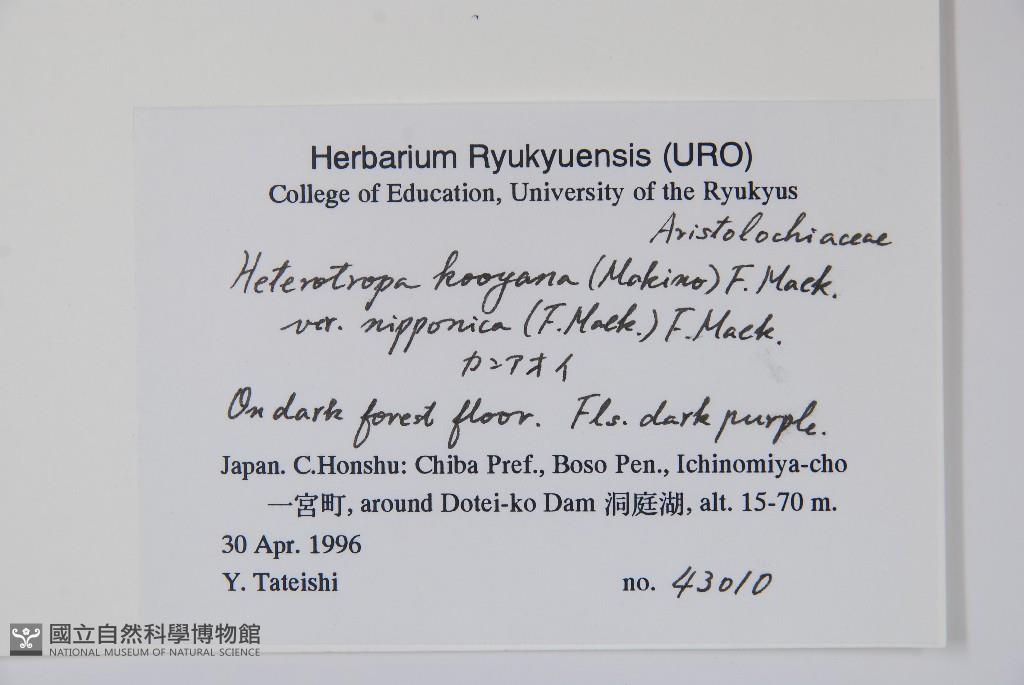 Herbarium Ryukyuensis (URO)
College of Education, University of the Ryukyus
Aristolochiaceae
Heterotropa kooyana (Makino) F. Maek.
var. nipponica (F. Maek.) F. Maek.
カンアオイ
On dark forest floor. Fls. dark purple.
Japan. C.Honshu: Chiba Pref., Boso Pen., Ichinomiya-cho
一宮町, around Dotei-ko Dam 洞庭湖, alt. 15-70 m.
30 Apr. 1996
Y. Tateishi no. 43010
國立自然科學博物館
NATIONAL MUSEUM OF NATURAL SCIENCE